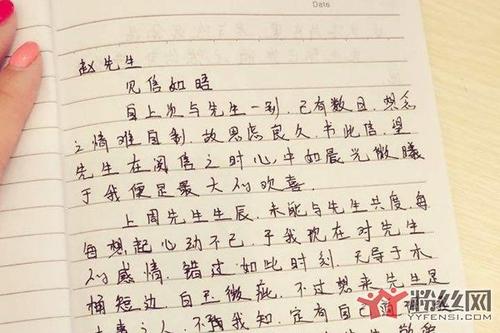 Date
赵先生
见信如晤
自上次与先生一别,已有数日,想念
之情难自制,故思虑良久,书此信,望
先生在阅信之时心中如晨光微曦
于我便足最大的欢喜。
上周先生生辰,未能与先生共度,每
每想起心动不已,于我现在对先生
的感情,错过如此时刻,无异于木
桶短边白玉微疵,不过想来先生是
之人,不 我知,定有自己
粉丝网
YYFENSI.COM